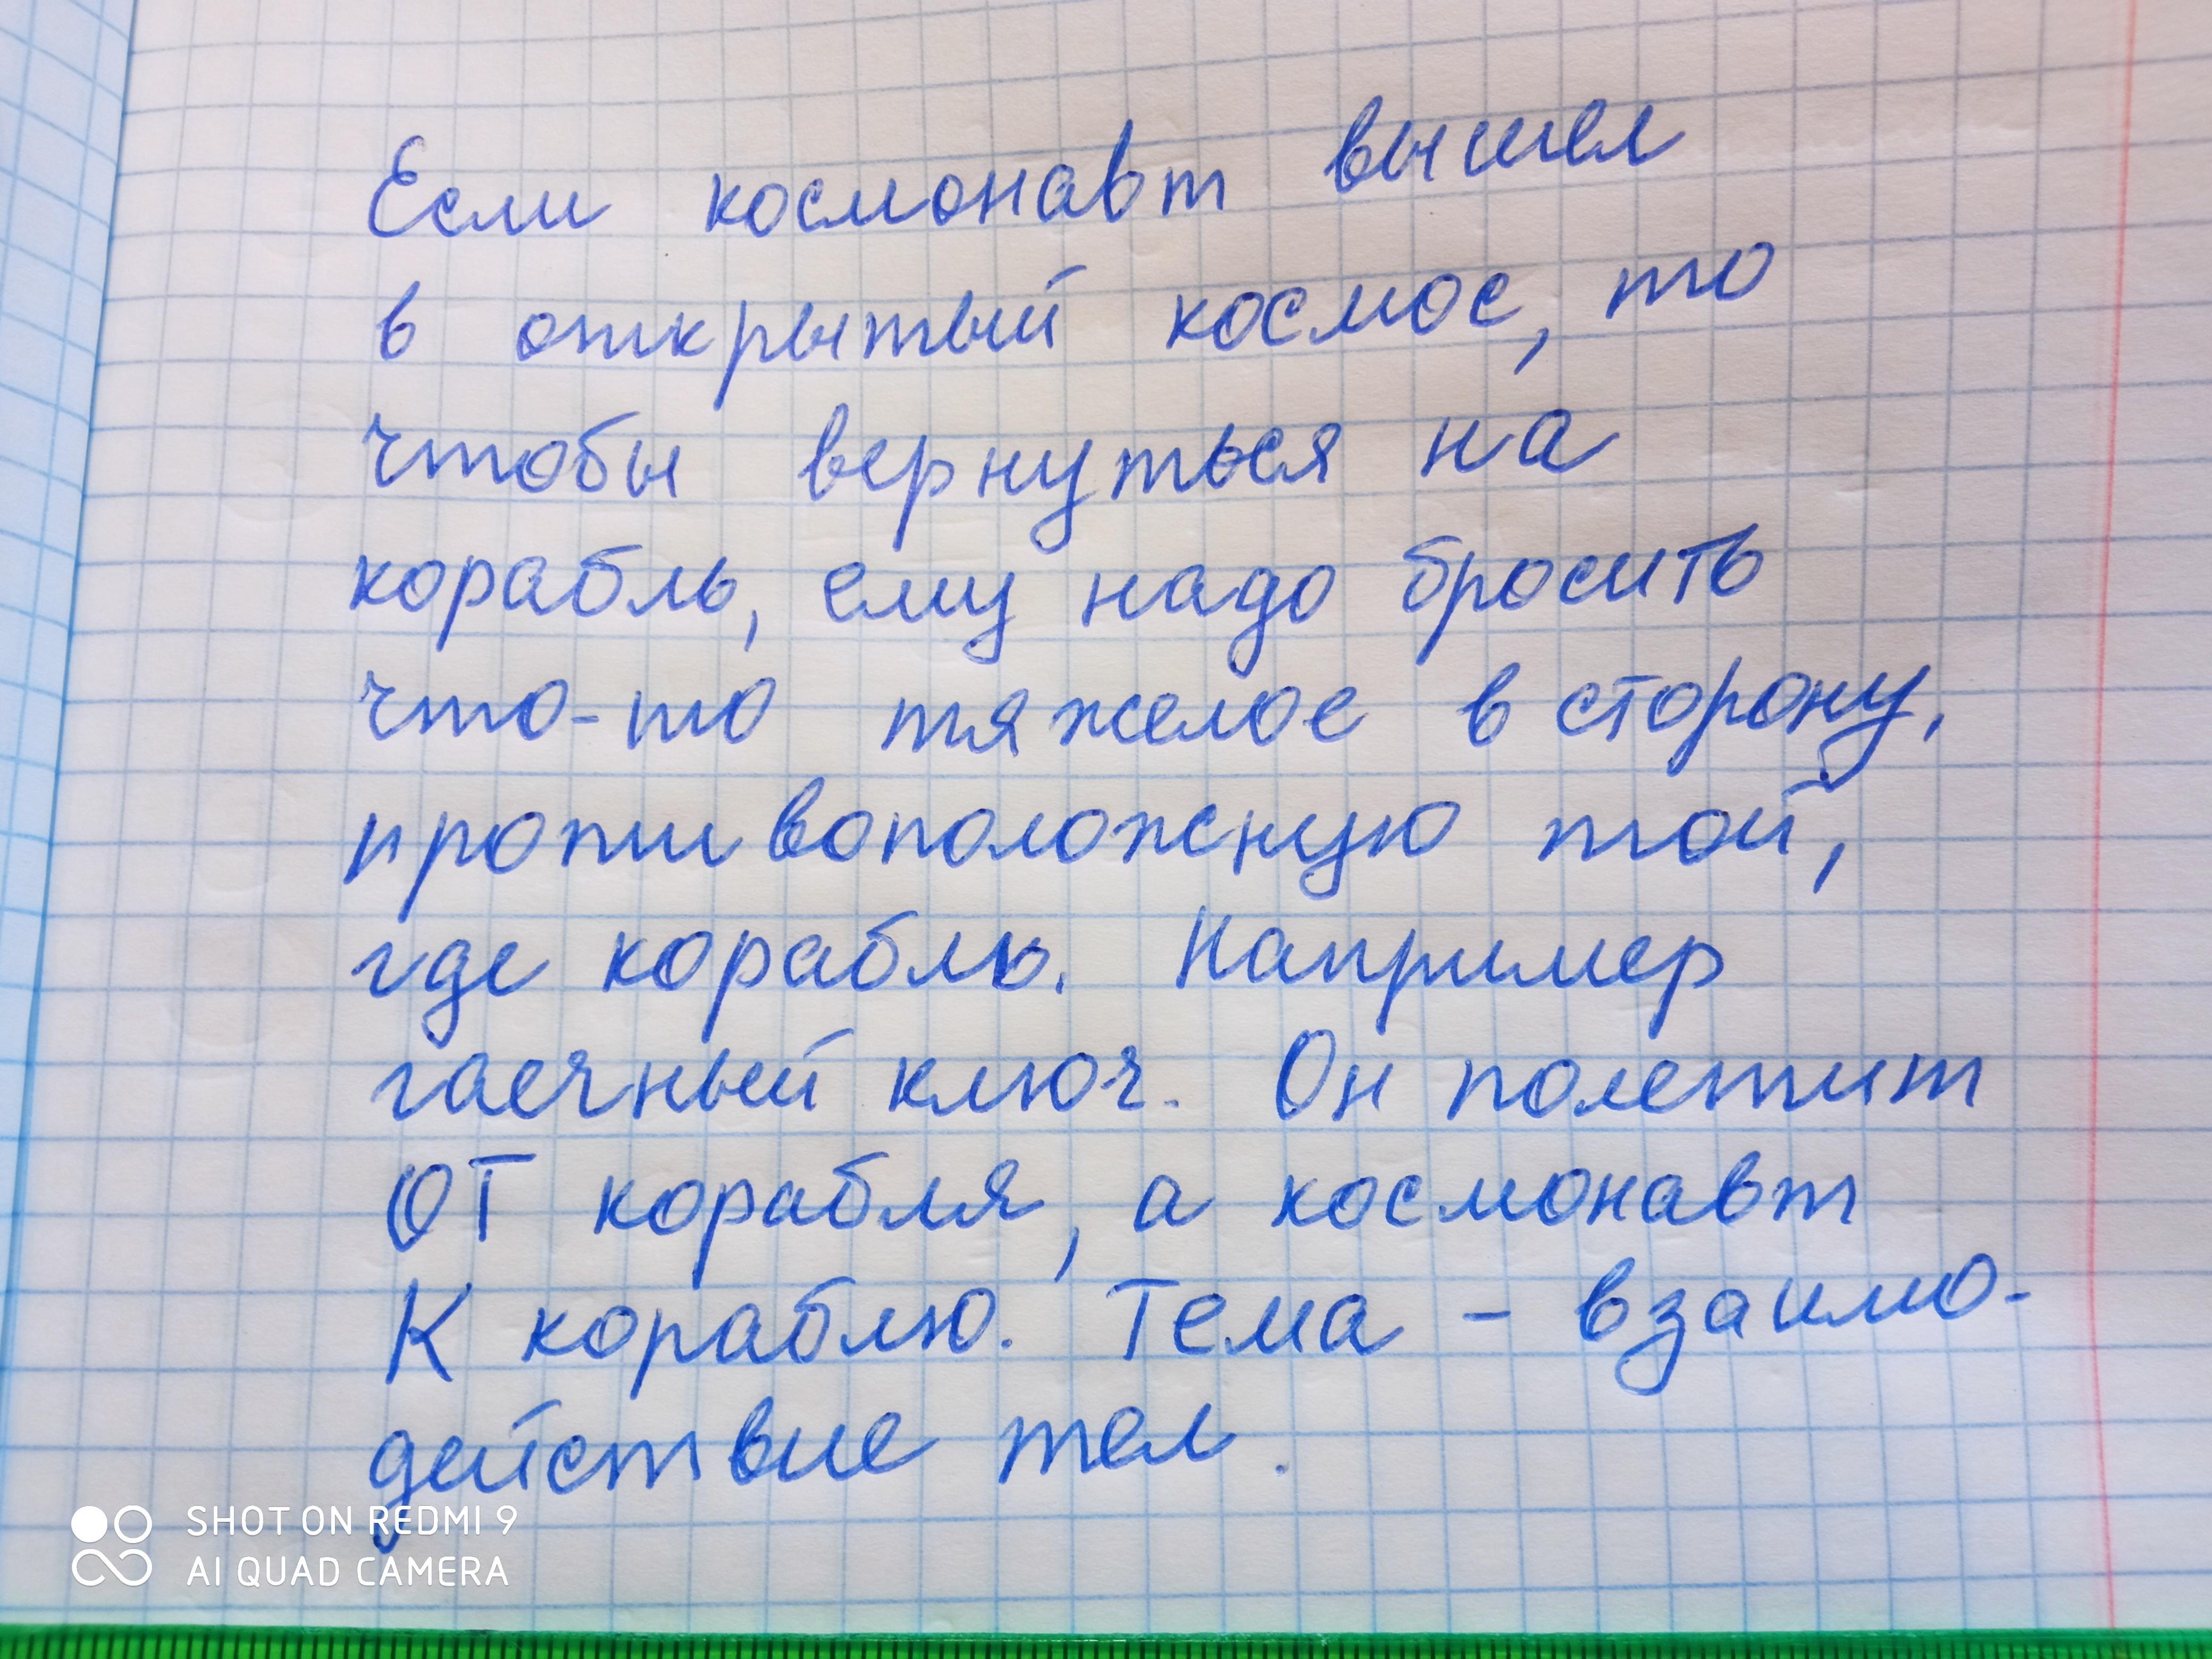 Если космонавт вышел
в открытый космос, то
чтобы вернуться на
корабль, ему надо бросить
что-то тяжелое в сторону,
противоположную той,
где корабль. Например
гаечный ключ. Он полетит
от корабля, а космонавт
к кораблю. Тема - взаимо-
действие тел.
SHOT ON REDMI 9
AI QUAD CAMERA